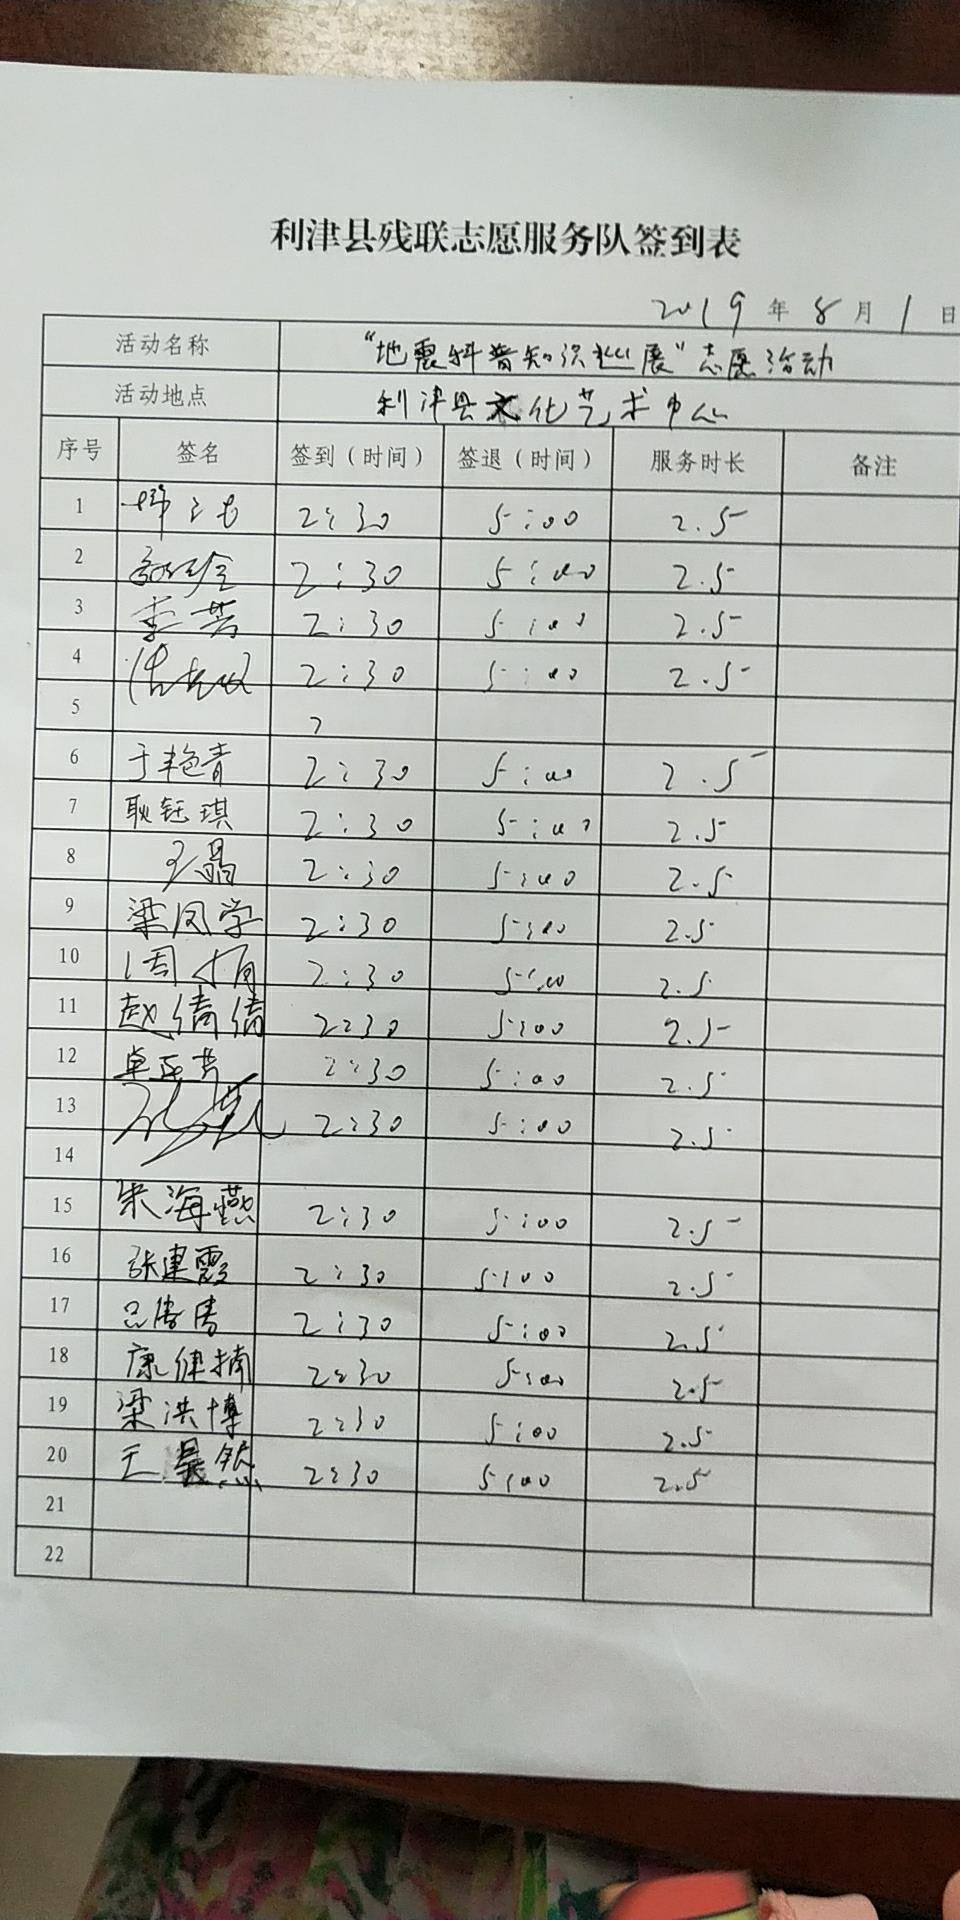 利津县残联志愿服务队签到表
2019年8月1日
活动名称 “地震科普知识巡展”志愿活动
活动地点 利津县文化艺术中心
序号 签名 签到（时间） 签退（时间） 服务时长 备注
1 2:30 5:00 2.5
2 2:30 5:00 2.5
3 李芳 2:30 5:00 2.5
4 2:30 5:00 2.5
5 2
6 于艳青 2:30 5:00 2.5
7 耿钰琪 2:30 5:00 2.5
8 王晶 2:30 5:00 2.5
9 梁凤学 2:30 5:00 2.5
10 周 2:30 5:00 2.5
11 赵倩倩 2:30 5:00 2.5
12 2:30 5:00 2.5
13 2:30 5:00 2.5
14
15 朱海燕 2:30 5:00 2.5
16 张建霞 2:30 5:00 2.5
17 2:30 5:00 2.5
18 康健楠 2:30 5:00 2.5
19 梁洪博 2:30 5:00 2.5
20 王晨然 2:30 5:00 2.5
21
22